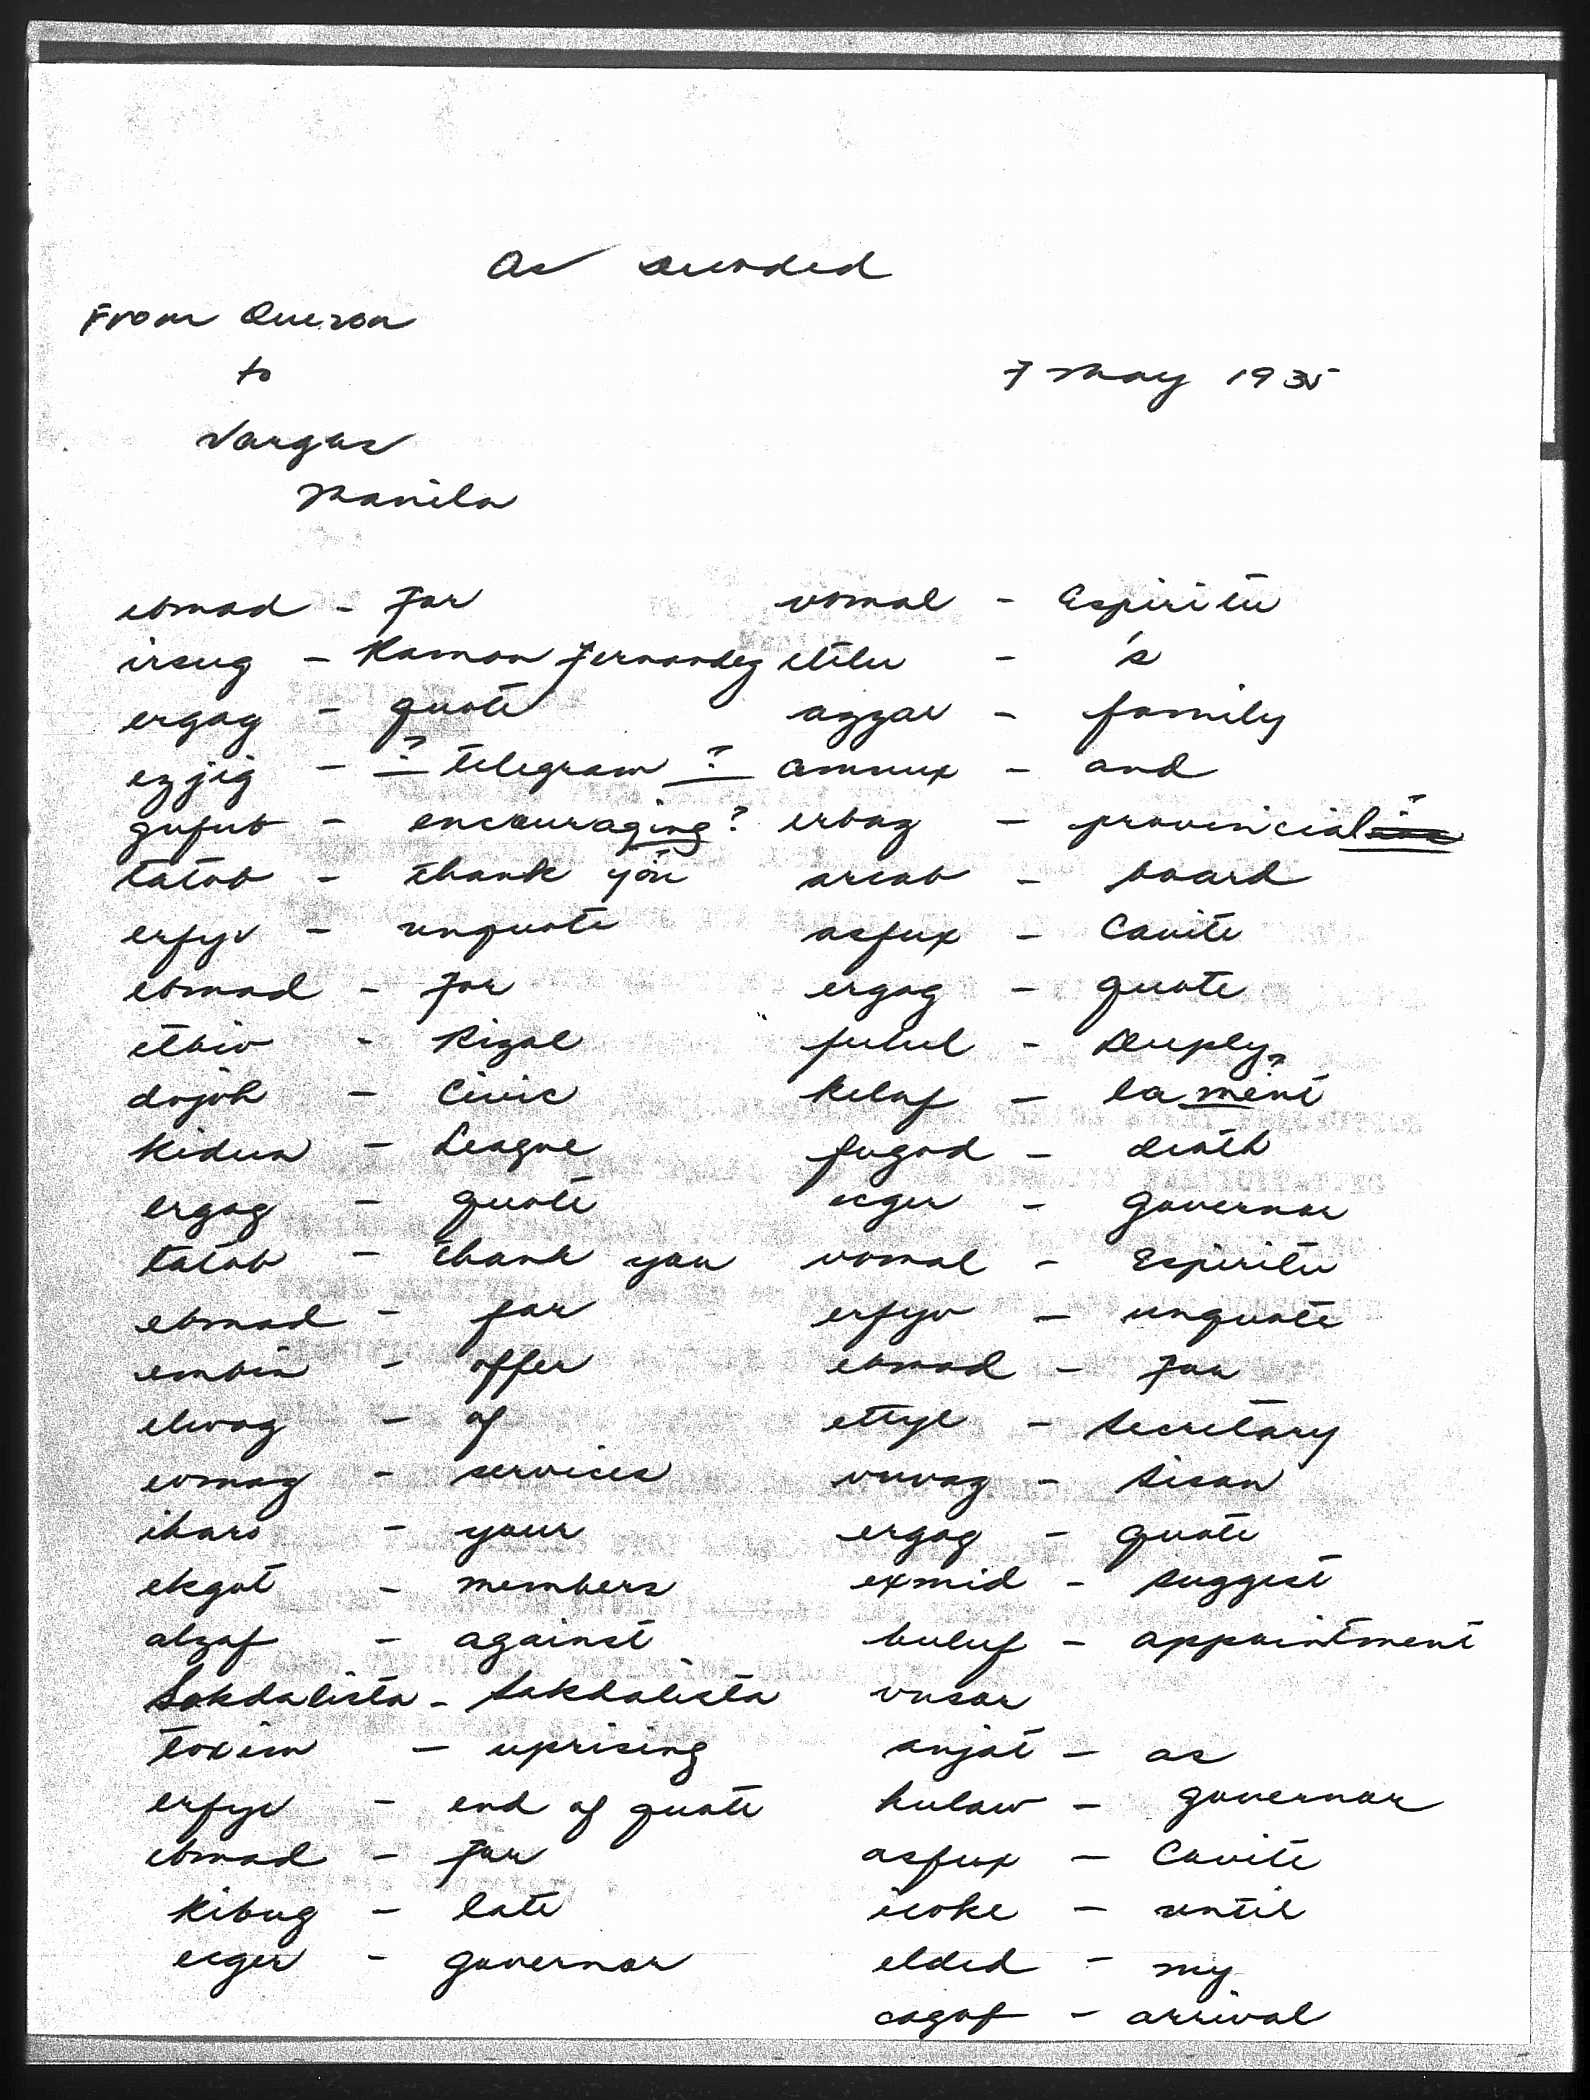 As decoded
From Quezon
to
7 May 1935
Vargas
Manila
ebmad - For
irsug - Ramon Fernandez
ergag - quote
ezjig - ? telegram ?
gufub - encouraging ?
tatob - thank you
erfyv - unquote
ebmad - For
etbiv - Rizal
dojoh - Civic
Kidun - League
ergag - quote
tatob - thank you
ebmad - for
embin - offer
elwag - of
evmag - services
iharo - your
ekgot - members
alzaf - against
Sakdalista - Sakdalista
toxim - uprising
erfyv - end of quote
ebmad - For
Kibug - late
ecger - governor
vomal - Espiritu
etilu - 's
azzar - family
amnux - and
erbag - provincial ?
arcab - board
asfux - Cavite
ergag - quote
fuhul - Deeply
Kelaf - lament ?
fugod - death
ecger - Governor
vomal - Espiritu
erfyv - unquote
ebmad - For
ettyl - Secretary
vuvag - Sison
ergag - quote
exmid - suggest
buluf - appointment
vusar
anjat - as
hulaw - governor
asfux - Cavite
icoke - until
elded - my
cagaf - arrival